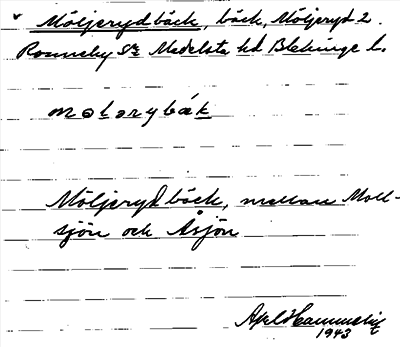 Möljeryd bäck, bäck, Möljeryd 2.
Ronneby Sn Medelsta hd Blekinge l.
Möljeryd bäck, mellan Moll-
sjön och Åsjön
Axel
1943